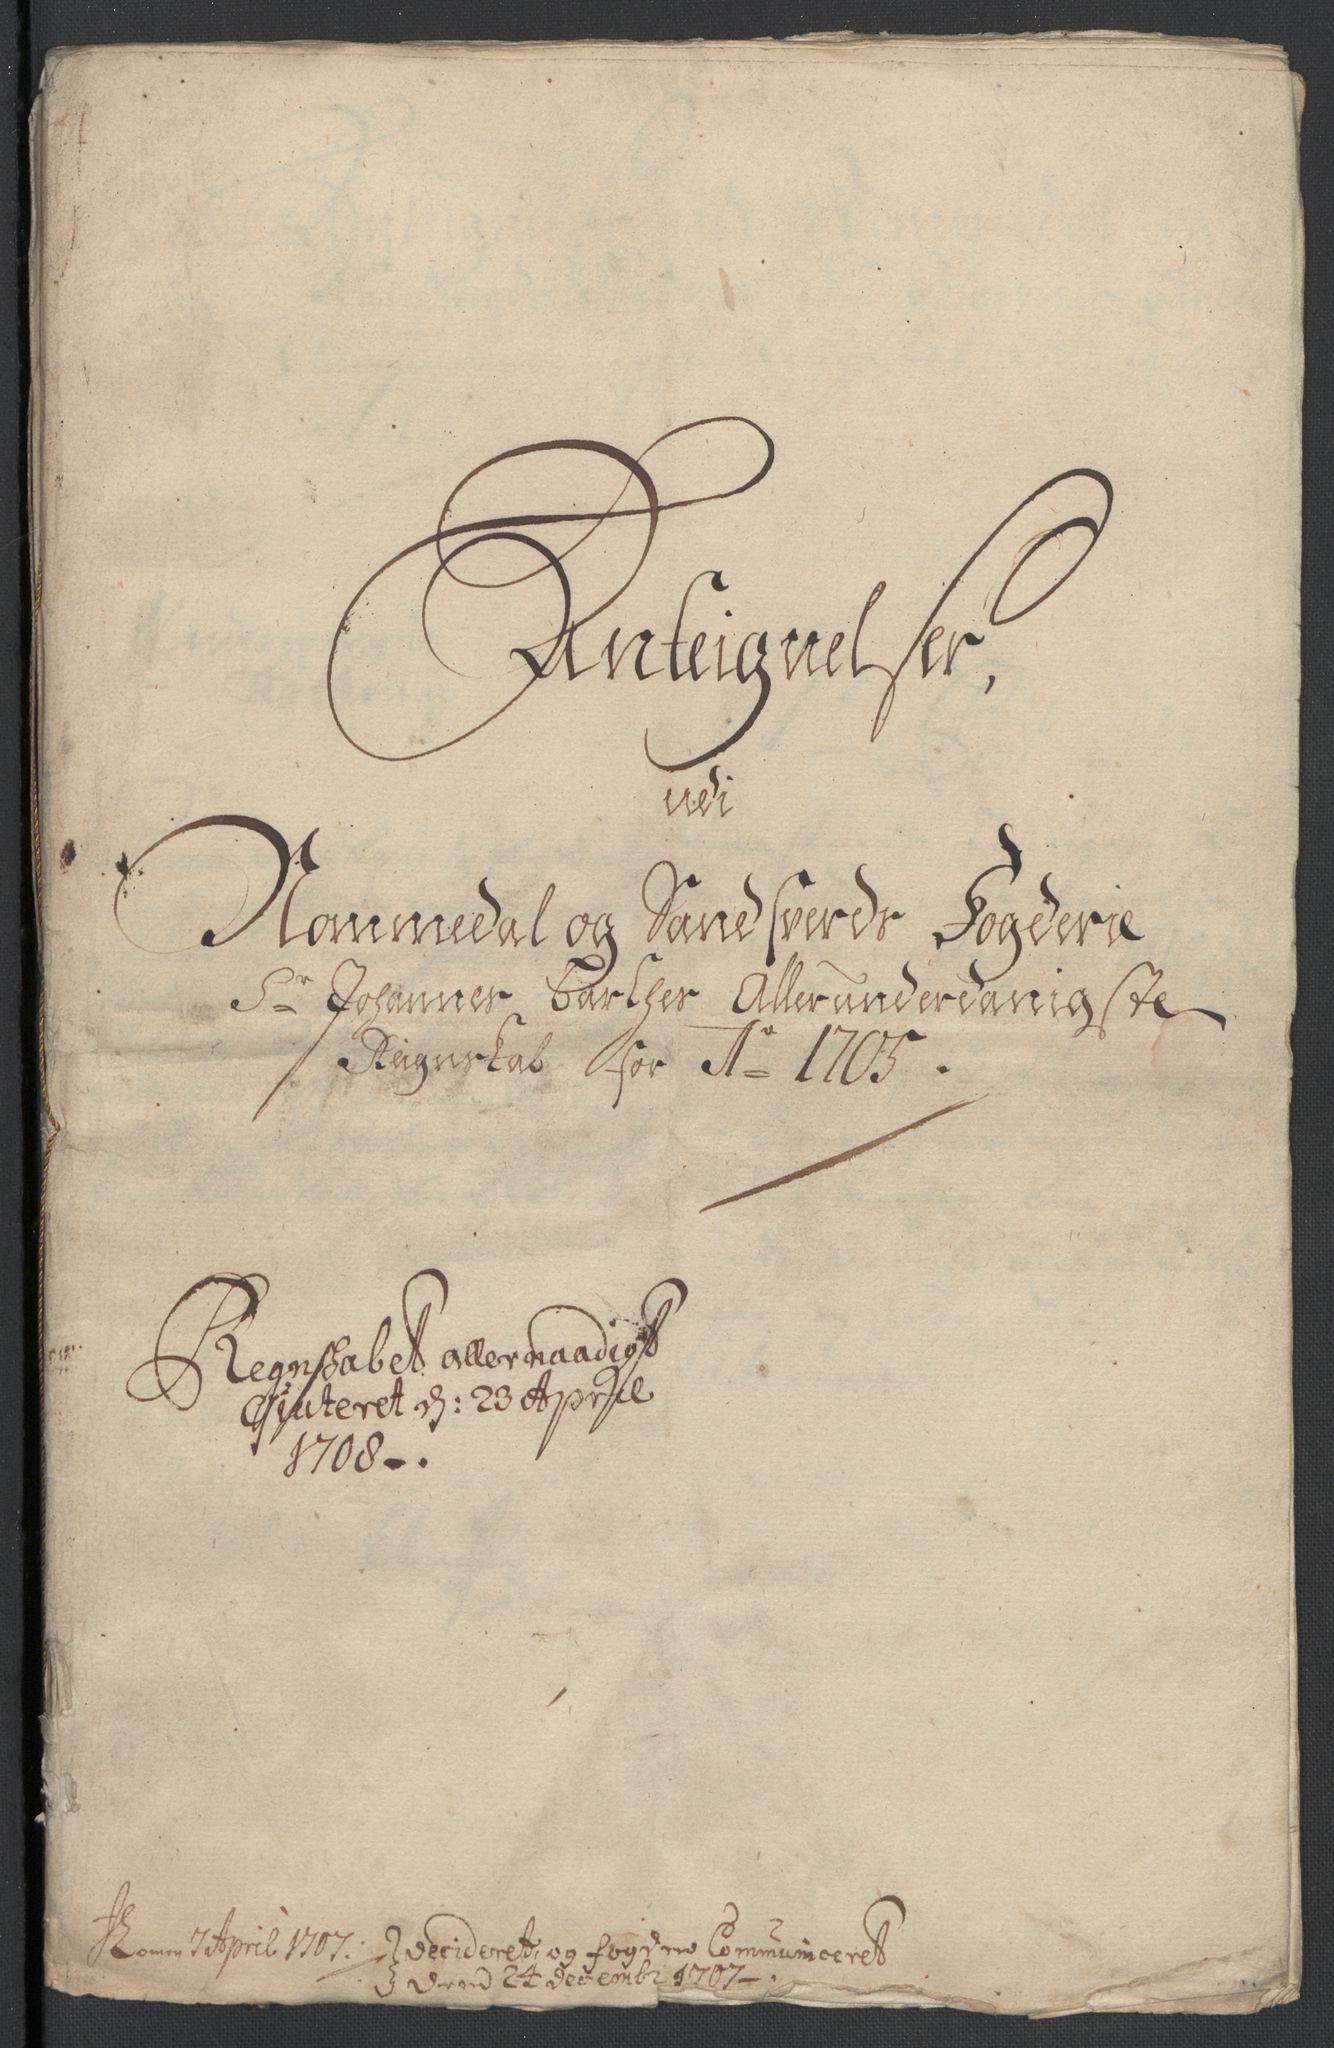 Anteignelser,
udi
Nommedal og Sandsverds Fogderie
Sr Johannes Barthes Allerunderdanigste
Reignskab for Ao 1705.
Regnskabet allernaadigst
Qviteret d: 23 April
1708.
Komen 7 April 1707.
decideret, og fogden Communiceret
dend 24 decembr 1707.